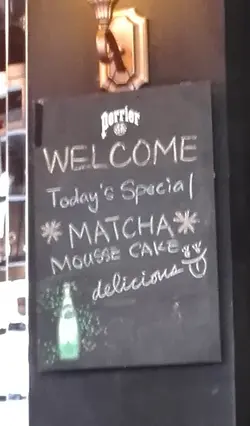 A
Perrier
WELCOME
Today's Special
*MATCHA*
MOUSSE CAKE
delicious